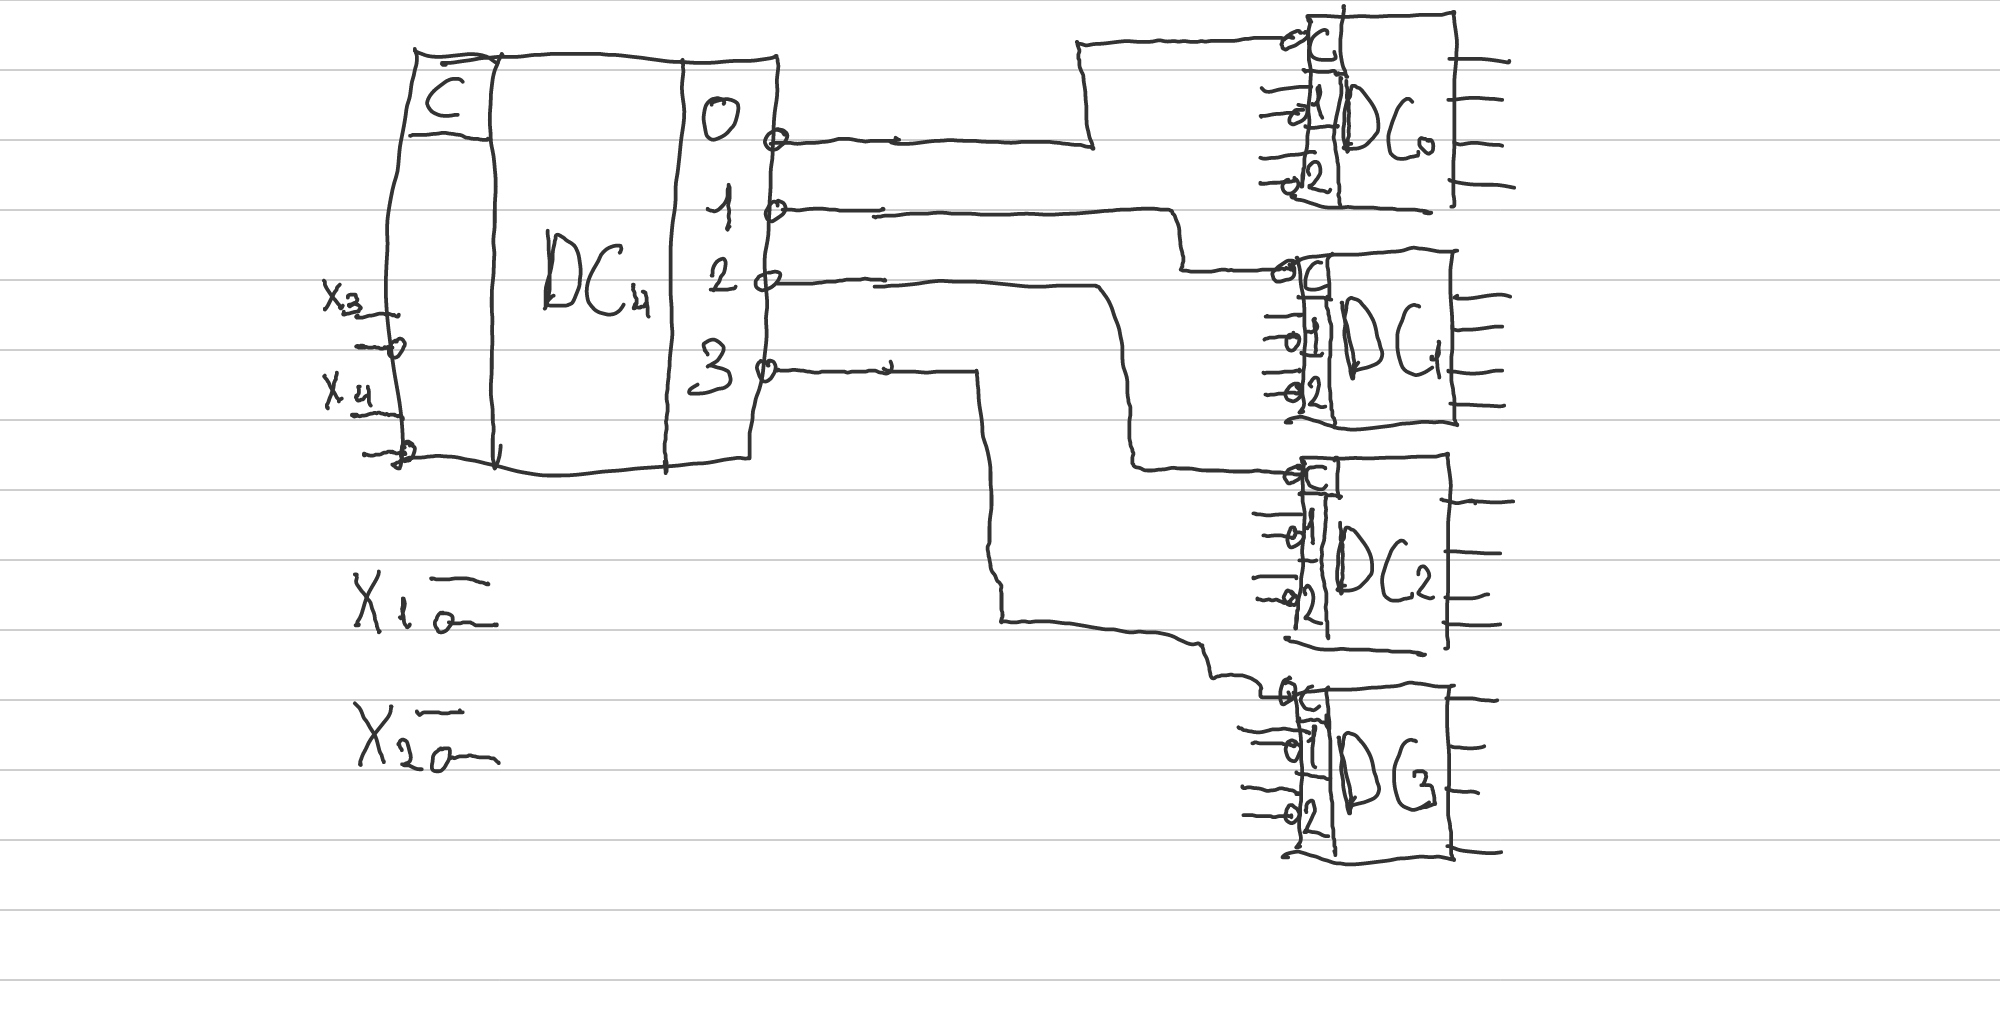 C
0
1
2
3
DC4
X3
X4
X1
X2
C
1
2
DC0
C
1
2
DC1
C
1
2
DC2
C
1
2
DC3